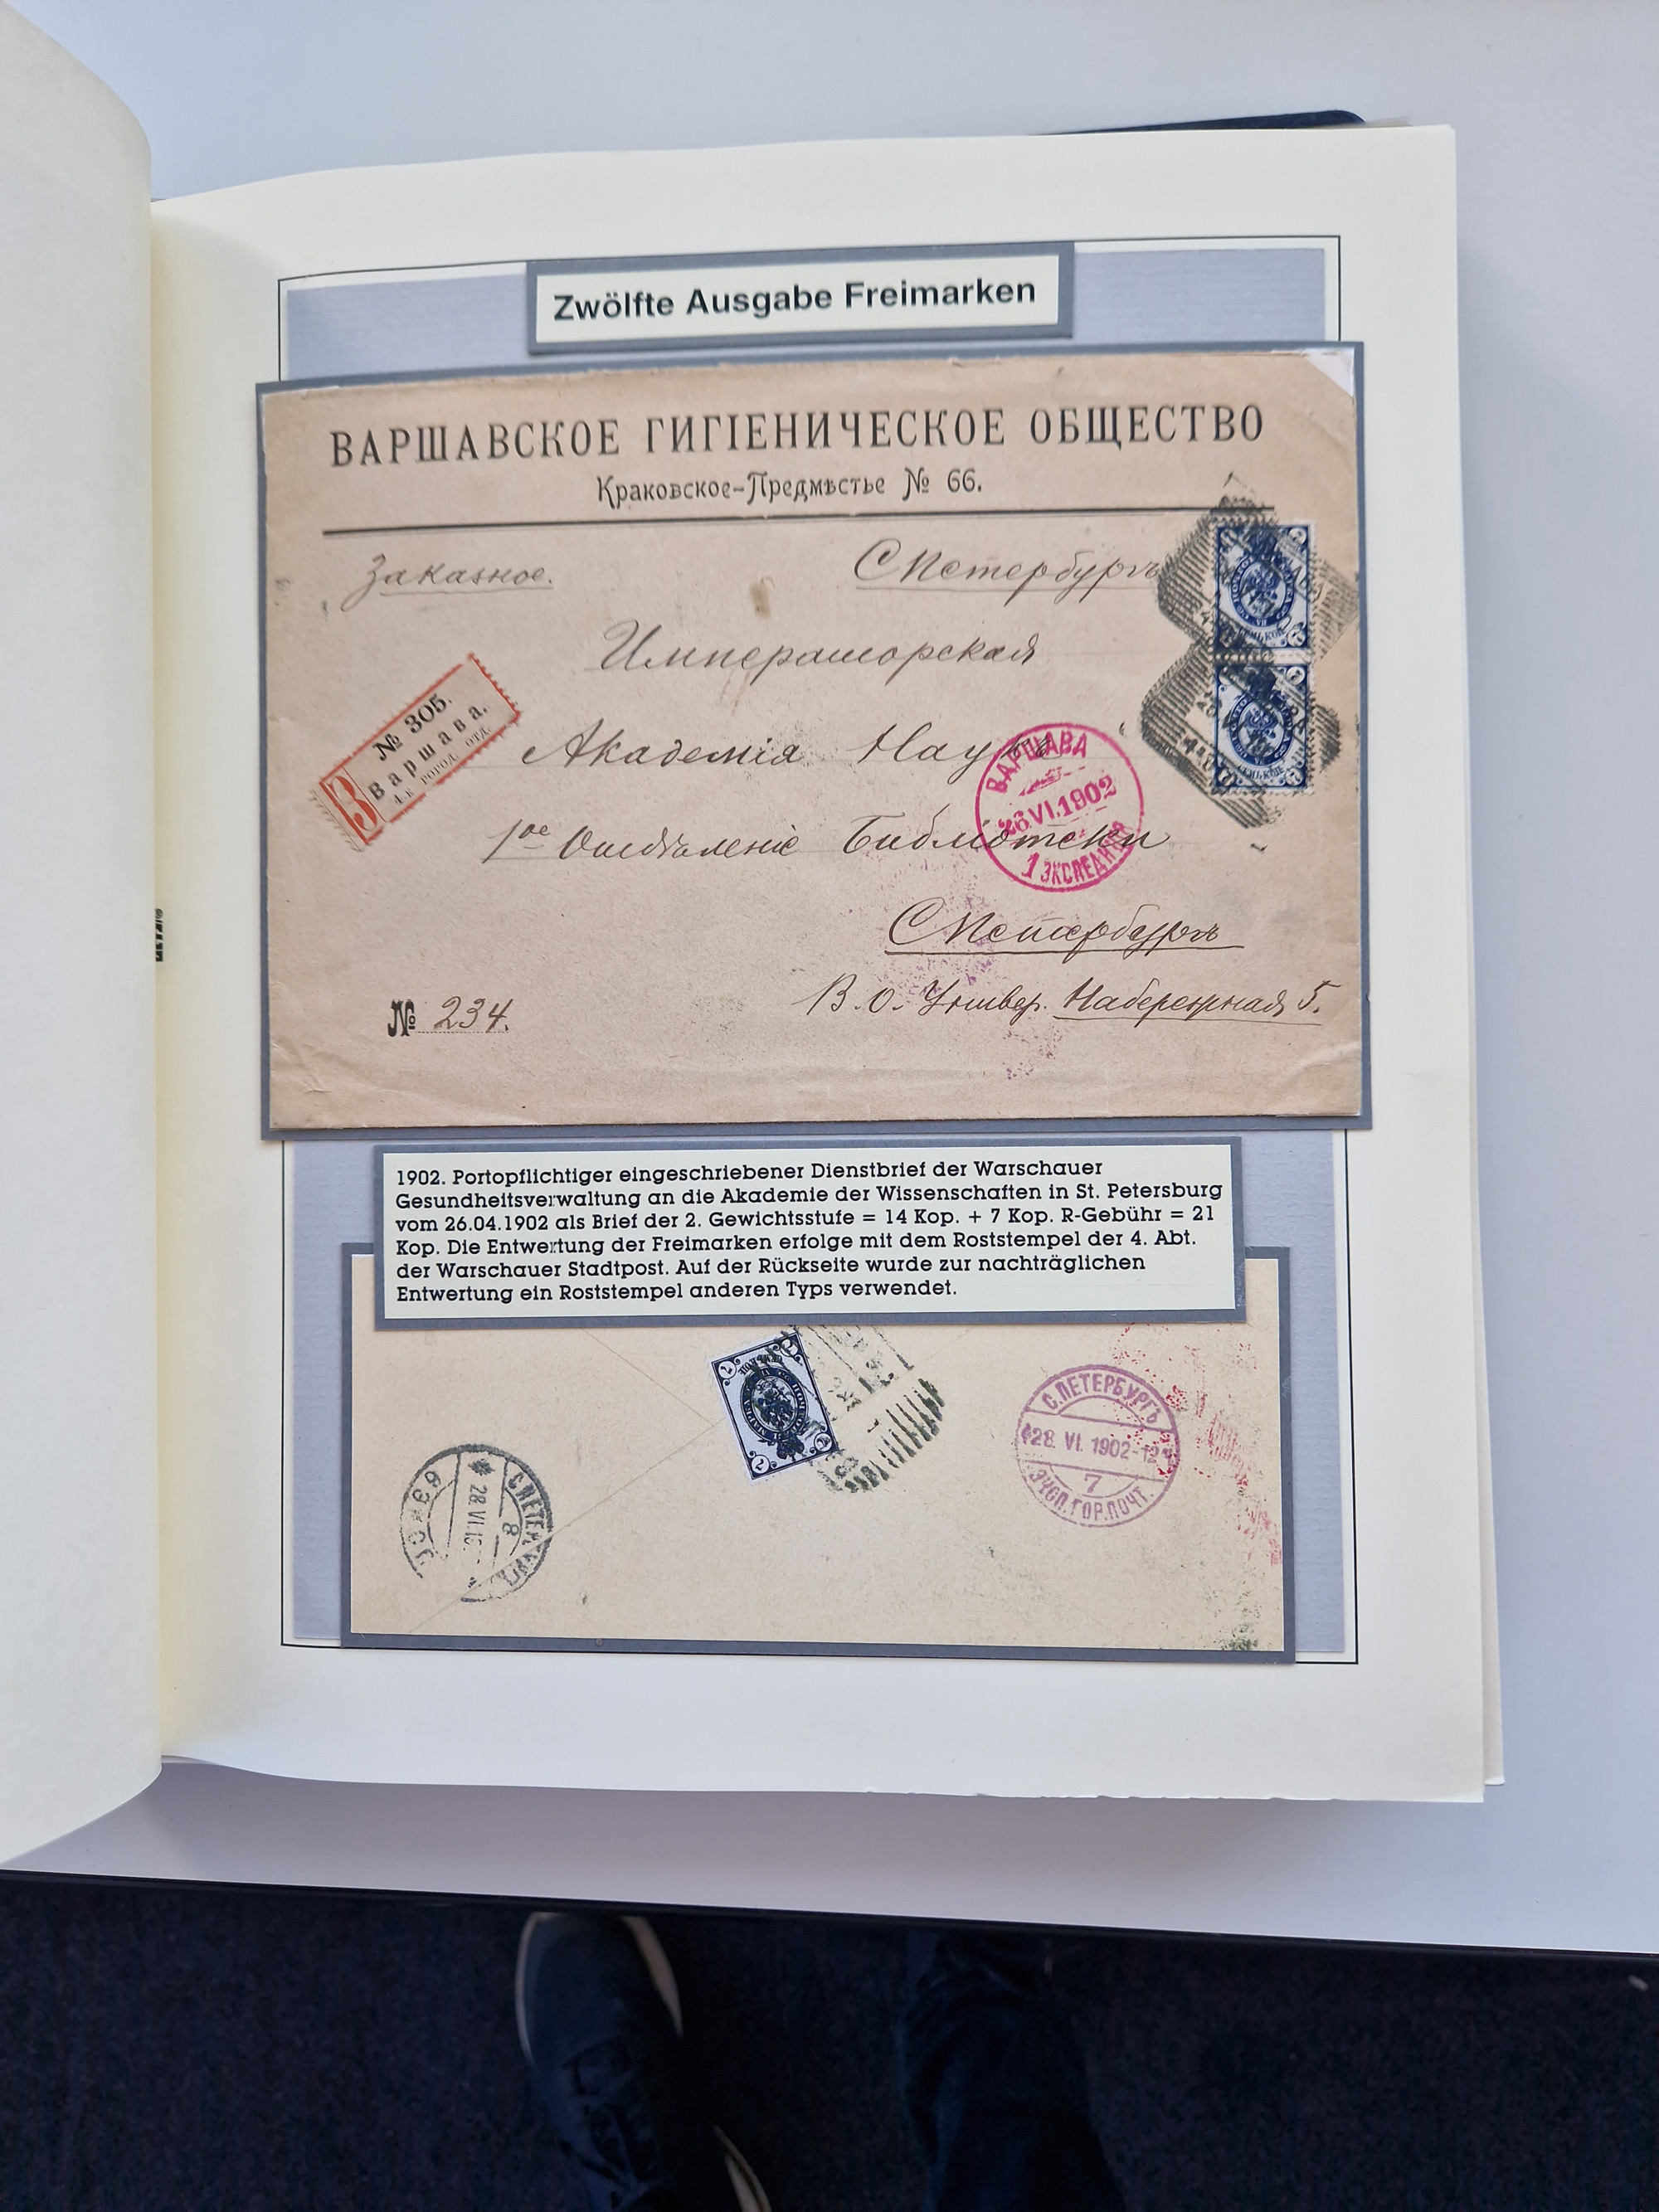 Zwölfte Ausgabe Freimarken
ВАРШАВСКОЕ ГИГІЕНИЧЕСКОЕ ОБЩЕСТВО
Краковское-Предмѣстье № 66.
Заказное.
СПетербургъ
Императорская
Академія Наукъ
1ое Отдѣленіе Библіотеки
СПетербургъ
В.О. Универ. Набережная 5.
№ 234.
№ 305.
Варшава.
4-е город. отд.
З
ВАРШАВА
26 VI.1902
1 ЭКСПЕДИЦІЯ
1902. Portopflichtiger eingeschriebener Dienstbrief der Warschauer
Gesundheitsverwaltung an die Akademie der Wissenschaften in St. Petersburg
vom 26.04.1902 als Brief der 2. Gewichtsstufe = 14 Kop. + 7 Kop. R-Gebühr = 21
Kop. Die Entwertung der Freimarken erfolge mit dem Roststempel der 4. Abt.
der Warschauer Stadtpost. Auf der Rückseite wurde zur nachträglichen
Entwertung ein Roststempel anderen Typs verwendet.
С.ПЕТЕРБУРГЪ
28. VI. 1902
7
ЭКСП.ГОР.ПОЧТ.
28 VI.19
8